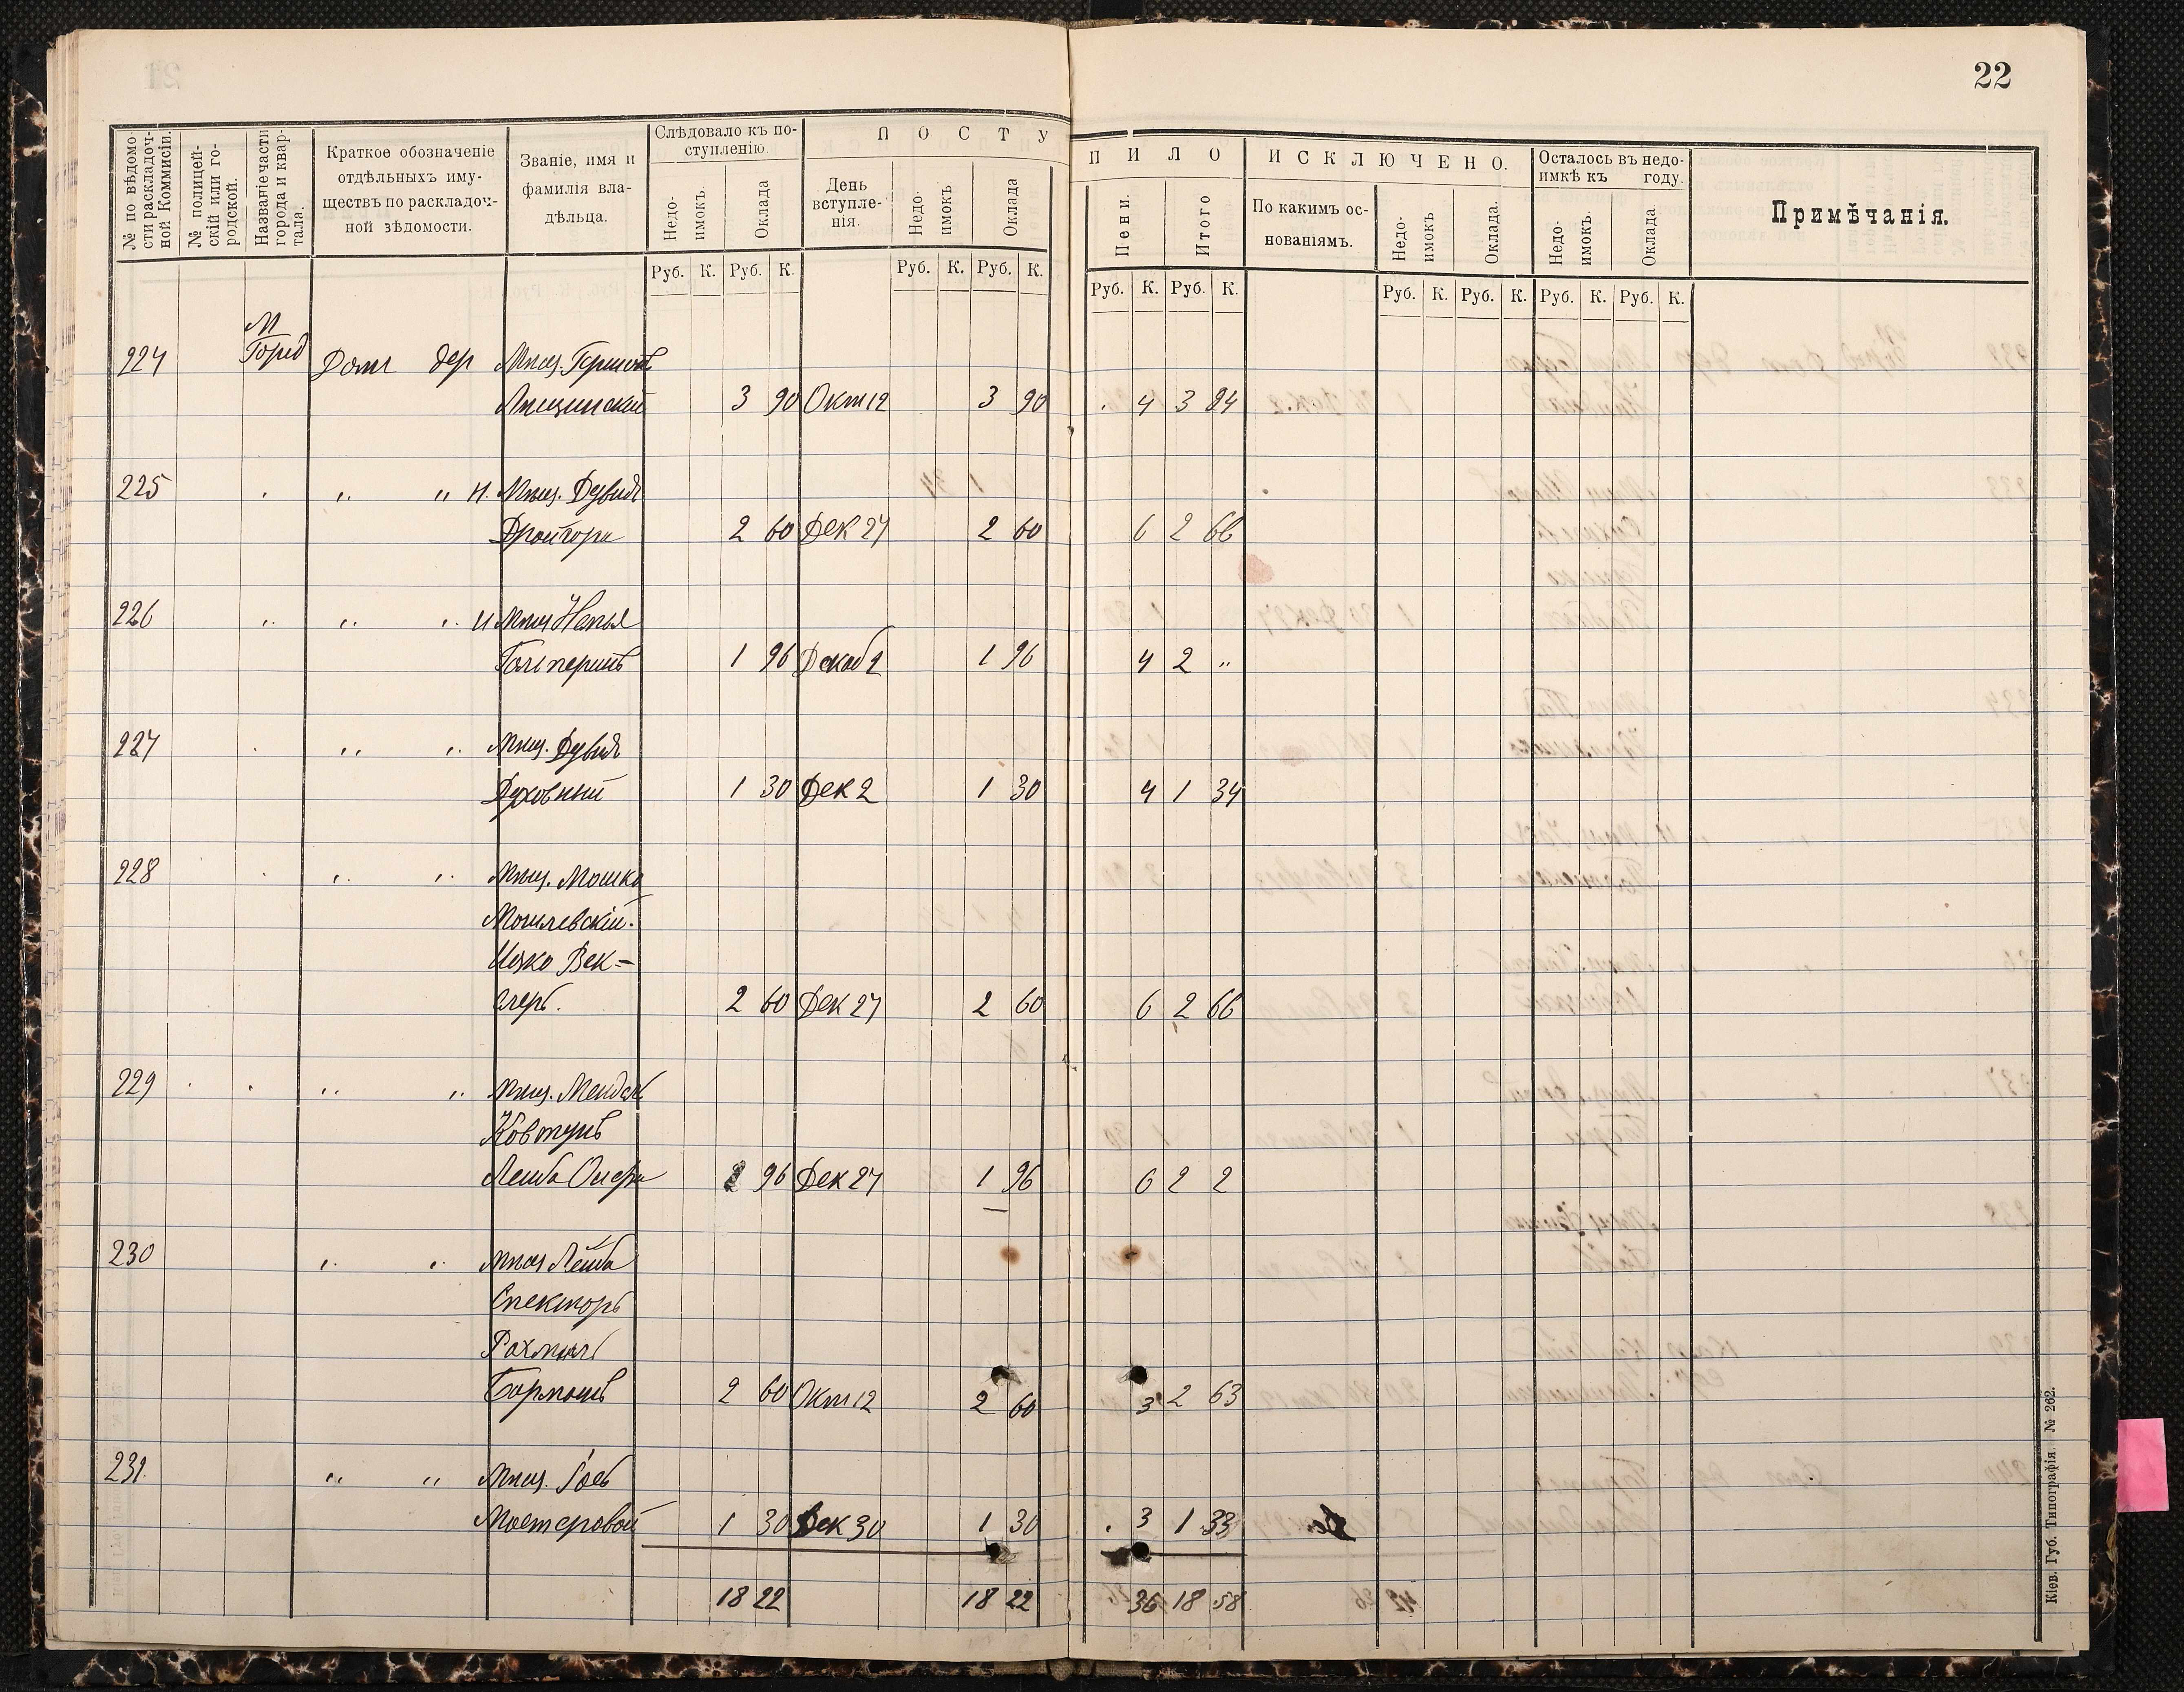 22
№ по вѣдомо-
сти раскладоч-
ной Коммисіи.
№ полицей-
скій или го-
родской.
Названіе части
города и квар-
тала.
Краткое обозначеніе
отдѣльныхъ иму-
ществъ по раскладоч-
ной вѣдомости.
Званіе, имя и
фамилія вла-
дѣльца.
Слѣдовало къ по-
ступленію.
Недо-
имокъ.
Оклада
ПОСТУ
ПИЛО
День
вступле-
нія.
Недо-
имокъ
Оклада
Пени.
Итого
ИСКЛЮЧЕНО.
По какимъ ос-
нованіямъ.
Недо-
имокъ
Оклада.
Осталось въ недо-
имкѣ къ году.
Недо-
имокъ.
Оклада.
Примѣчанія.
Руб. К. Руб. К. Руб. К. Руб. К. Руб. К. Руб. К. Руб. К. Руб. К. Руб. К. Руб. К.
М
Город
224 Дом дер Мѣщ.
3 90 Окт 12 3 90 . 4 3 94
225 . " " И Мѣщ. Дувидъ
2 60 Дек 27 2 60 6 2 66
226 " " " И Мѣщ
Гальперинъ 1 96 Декаб 2 1 96 4 2 "
227 . " " Мѣщ. Дувидъ
Духовный 1 30 Дек 2 1 30 4 1 34
228 . " " Мѣщ. Мошко
Могилевскій.
Ицко Век=
слеръ. 2 60 Дек 27 2 60 6 2 66
229 . . " " Мѣщ. Мендель
Ковтунъ
Лейба 96 Дек 27 1 96 6 2 2
230 " " Мѣщ Лейба
Спекторъ
Рахмиль
2 60 Окт 12 2 60 3 2 63
231. " " Мѣщ.
Мостеровой 1 30 Дек 30 1 30 . 3 1 33
18 22 18 22 36 18 58
Кіев. Губ. Типографія. № 262.